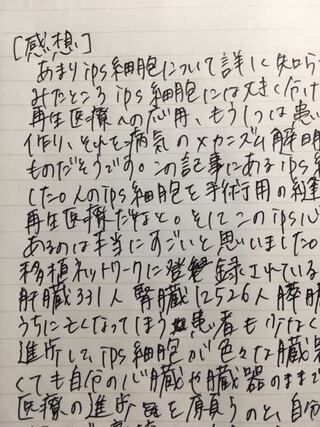 [感想]
あまりips細胞について詳しく知ら
みたところips細胞には大きく分け
再生医療への応用、もう1つは患
作り、それで病気のメカニズム解明
ものだそうです。この記事にあるips
した。人のips細胞を手術用の縫
再生医療だなと。そしてこのips心
あるのは本当にすごいと思いました。
移植ネットワークに登録されている
肝臓331人 腎臓12526人 膵臓
うちに亡くなってしまう患者も少なく
進歩して、ips細胞が色々な臓器
くても自分の心臓や臓器のままで
医療の進歩を願うのと、自分